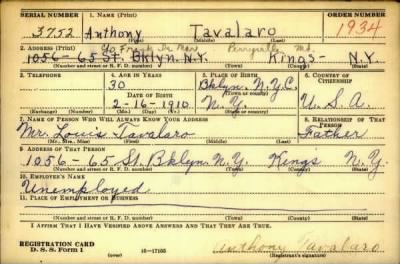 SERIAL NUMBER 1. NAME (Print) ORDER NUMBER
3752 Anthony Tavalaro 1934
(First) (Middle) (Last)
Perryville Md.
2. ADDRESS (Print)
1056-65 St. Bklyn. N.Y. Kings- N.Y.
(Number and street or R. F. D. number) (Town) (County) (State)
3. TELEPHONE 4. AGE IN YEARS 5. PLACE OF BIRTH 6. COUNTRY OF CITIZENSHIP
30 Bklyn. N.Y.C.
DATE OF BIRTH (Town or county)
2-16-1910 N.Y. U.S.A.
(Exchange) (Number) (Mo.) (Day) (Yr.) (State or country)
7. NAME OF PERSON WHO WILL ALWAYS KNOW YOUR ADDRESS 8. RELATIONSHIP OF THAT PERSON
Mr. Louis Tavalaro Father
(Mr., Mrs., Miss) (First) (Middle) (Last)
9. ADDRESS OF THAT PERSON
1056-65 St. Bklyn. N.Y. Kings N.Y.
(Number and street or R. F. D. number) (Town) (County) (State)
10. EMPLOYER'S NAME
Unemployed
11. PLACE OF EMPLOYMENT OR BUSINESS
(Number and street or R. F. D. number) (Town) (County) (State)
I AFFIRM THAT I HAVE VERIFIED ABOVE ANSWERS AND THAT THEY ARE TRUE.
REGISTRATION CARD
D. S. S. Form 1 16-17105 Anthony Tavalaro
(Registrant's signature)